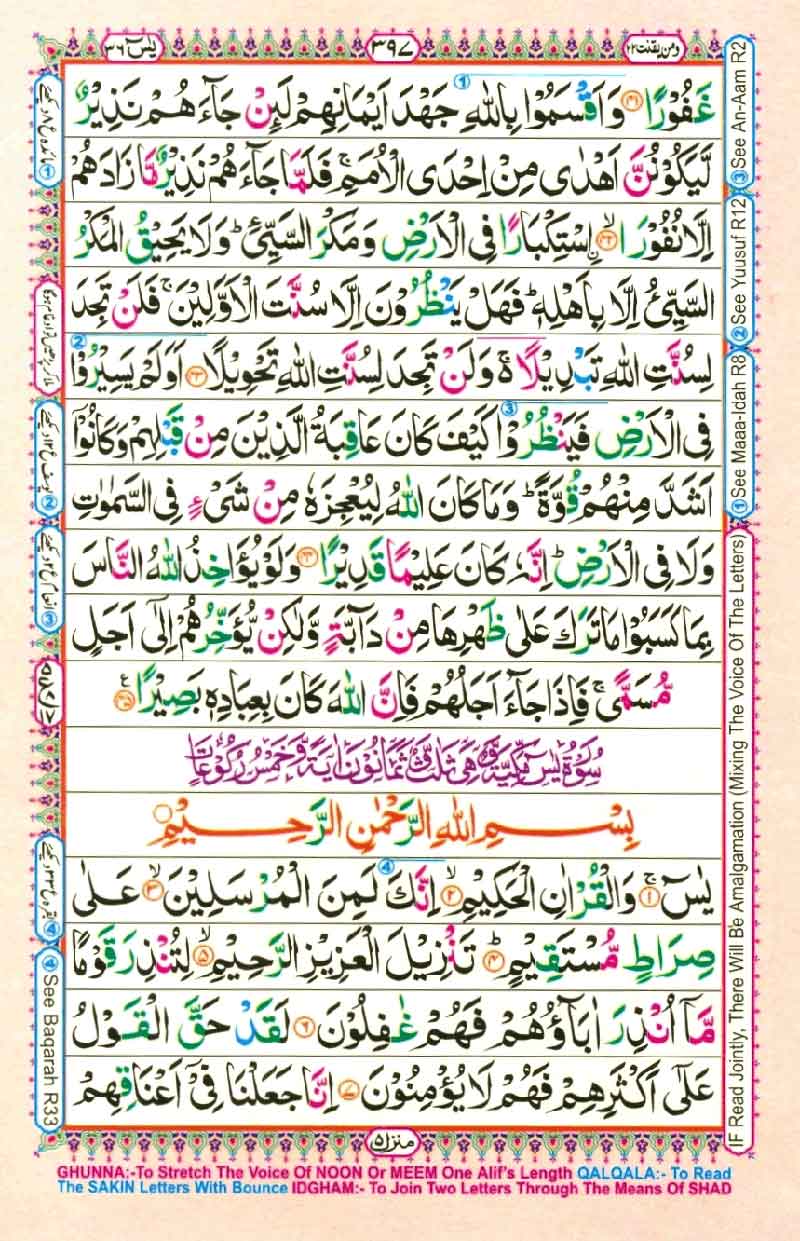 ومن يقنت ٢٢
٣٩٧
يٰسٓ ٣٦
غَفُوۡرًا ﴿۴۱﴾ وَاَقۡسَمُوۡا بِاللّٰهِ جَهۡدَ اَيۡمَانِهِمۡ لَئِنۡ جَآءَهُمۡ نَذِيۡرٌ
لَّيَكُوۡنُنَّ اَهۡدٰى مِنۡ اِحۡدَى الۡاُمَمِ ۚ فَلَمَّا جَآءَهُمۡ نَذِيۡرٌ مَّا زَادَهُمۡ
اِلَّا نُفُوۡرَا ۙ﴿۴۲﴾ ۨاسۡتِكۡبَارًا فِى الۡاَرۡضِ وَمَكۡرَ السَّيِّئِ ؕ وَلَا يَحِيۡقُ الۡمَكۡرُ
السَّيِّئُ اِلَّا بِاَهۡلِهٖ ؕ فَهَلۡ يَنۡظُرُوۡنَ اِلَّا سُنَّتَ الۡاَوَّلِيۡنَ ۚ فَلَنۡ تَجِدَ
لِسُنَّتِ اللّٰهِ تَبۡدِيۡلًا ۚ وَلَنۡ تَجِدَ لِسُنَّتِ اللّٰهِ تَحۡوِيۡلًا ﴿۴۳﴾ اَوَلَمۡ يَسِيۡرُوۡا
فِى الۡاَرۡضِ فَيَنۡظُرُوۡا كَيۡفَ كَانَ عَاقِبَةُ الَّذِيۡنَ مِنۡ قَبۡلِهِمۡ وَكَانُوۡۤا
اَشَدَّ مِنۡهُمۡ قُوَّةً ؕ وَمَا كَانَ اللّٰهُ لِيُعۡجِزَهٗ مِنۡ شَىۡءٍ فِى السَّمٰوٰتِ
وَلَا فِى الۡاَرۡضِ ؕ اِنَّهٗ كَانَ عَلِيۡمًا قَدِيۡرًا ﴿۴۴﴾ وَلَوۡ يُؤَاخِذُ اللّٰهُ النَّاسَ
بِمَا كَسَبُوۡا مَا تَرَكَ عَلٰى ظَهۡرِهَا مِنۡ دَآبَّةٍ وَّلٰكِنۡ يُّؤَخِّرُهُمۡ اِلٰٓى اَجَلٍ
مُّسَمًّى ۚ فَاِذَا جَآءَ اَجَلُهُمۡ فَاِنَّ اللّٰهَ كَانَ بِعِبَادِهٖ بَصِيۡرًا ﴿۴۵﴾ ع
سُوۡرَةُ يٰسٓ مَكِّيَّةٌ وَّهِىَ ثَلٰثٌ وَّثَمَانُوۡنَ اٰيَةً وَّخَمۡسُ رُكُوۡعَاتٍ
بِسۡمِ اللّٰهِ الرَّحۡمٰنِ الرَّحِيۡمِ
يٰسٓ ۚ﴿۱﴾ وَالۡقُرۡاٰنِ الۡحَكِيۡمِ ۙ﴿۲﴾ اِنَّكَ لَمِنَ الۡمُرۡسَلِيۡنَ ۙ﴿۳﴾ عَلٰى
صِرَاطٍ مُّسۡتَقِيۡمٍ ؕ﴿۴﴾ تَنۡزِيۡلَ الۡعَزِيۡزِ الرَّحِيۡمِ ۙ﴿۵﴾ لِتُنۡذِرَ قَوۡمًا
مَّاۤ اُنۡذِرَ اٰبَآؤُهُمۡ فَهُمۡ غٰفِلُوۡنَ ﴿۶﴾ لَقَدۡ حَقَّ الۡقَوۡلُ
عَلٰٓى اَكۡثَرِهِمۡ فَهُمۡ لَا يُؤۡمِنُوۡنَ ﴿۷﴾ اِنَّا جَعَلۡنَا فِىۡۤ اَعۡنَاقِهِمۡ
منزل ٥
③ See An-Aam R2
② See Yuusuf R12
① See Maaa-Idah R8
IF Read Jointly, There Will Be Amalgamation (Mixing The Voice Of The Letters)
④ See Baqarah R33
GHUNNA:-To Stretch The Voice Of NOON Or MEEM One Alif's Length QALQALA:- To Read
The SAKIN Letters With Bounce IDGHAM:- To Join Two Letters Through The Means Of SHAD